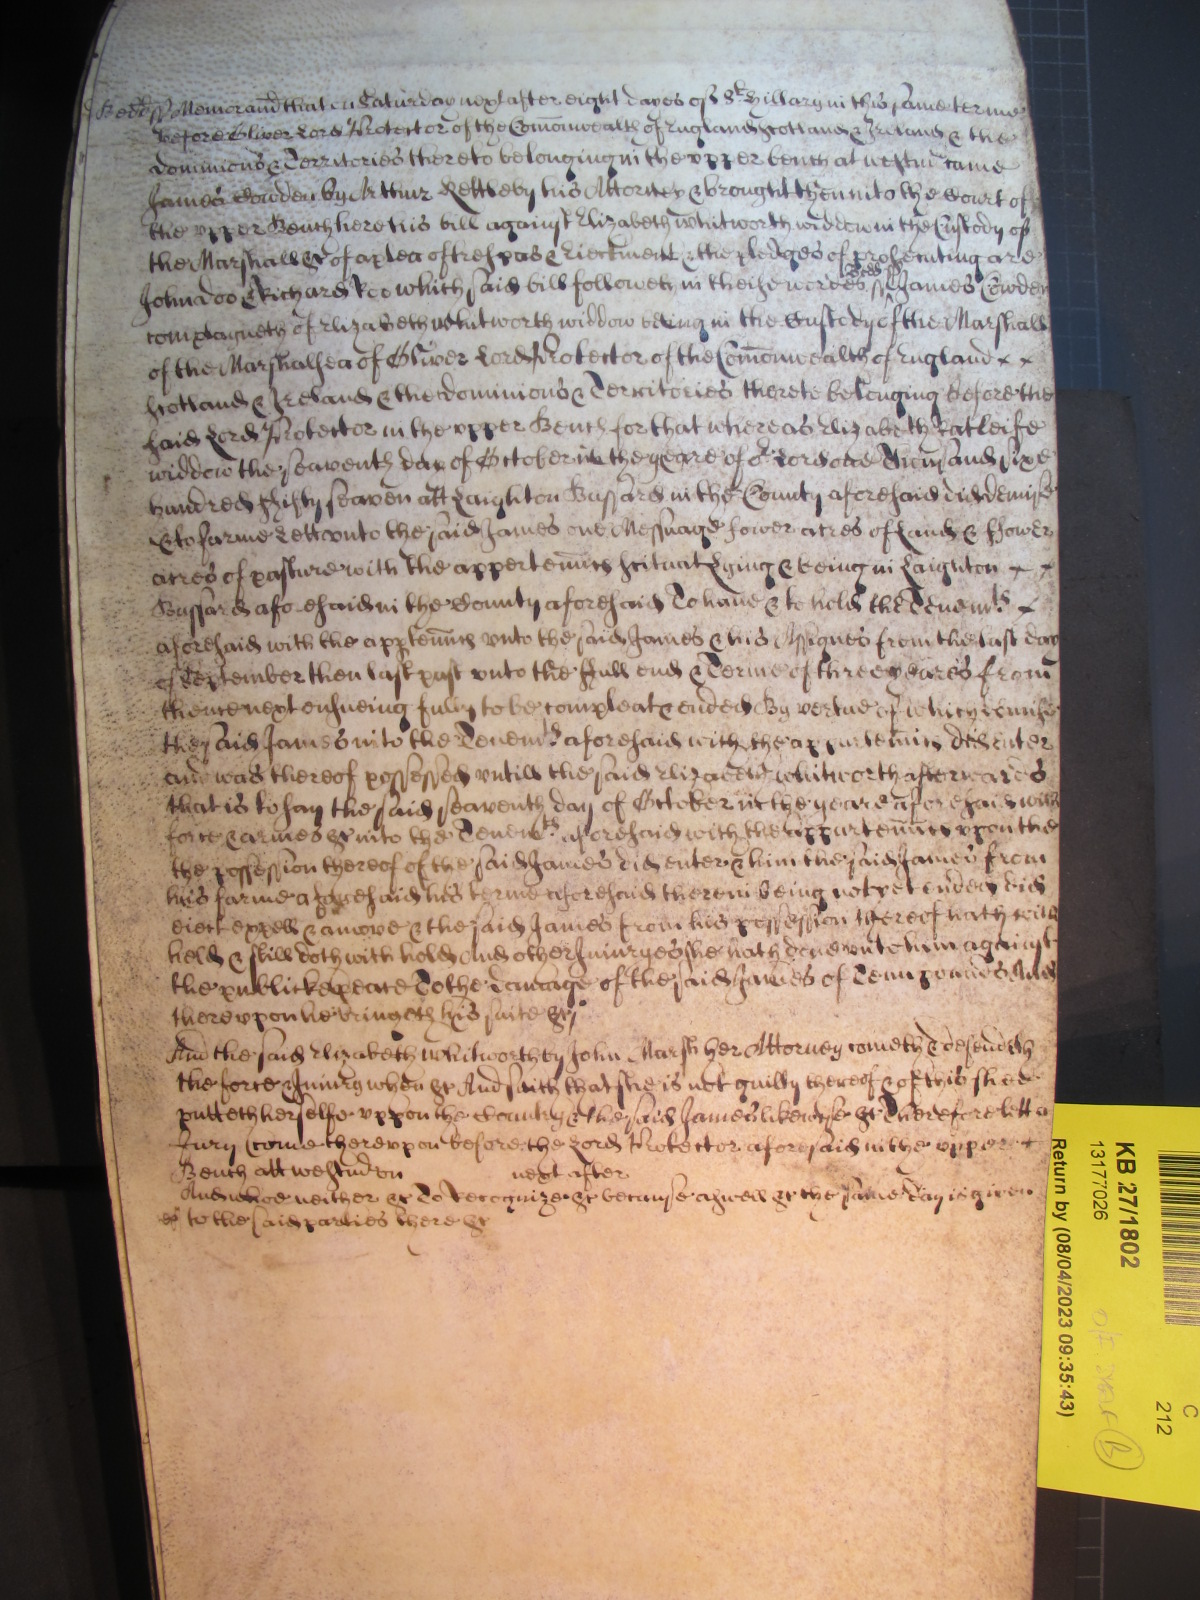 Bedd ss Memorand that on Saturday next after eight dayes of St Hillary in this same terme
before Oliver Lord Protector of the Comonwealth of England Scotland & Ireland & the
dominions & Territories thereto belonging in the upper bench at westmr came
James Cowden by Arthur Kettleby his Attorney & brought then into the Court of
the upper Bench here his bill against Elizabeth whitworth widdow in the Custody of
the Marshall &c of a plea of trespas & Eiectment & the pledges of prosecuting are
John doo & Richard Roo which said bill followeth in theise wordes ss Bedd ss James Cowden
complayneth of Elizabeth whitworth widdow being in the Custody of the Marshall
of the Marshalsea of Oliver Lord Protector of the Comonwealth of England x x
Scotland & Ireland & the dominions & Territories thereto belonging before the
said Lord Protector in the upper Bench for that whereas Elizabeth Ratleife
widdow the seaventh day of October in the yeare of or Lord one thousand sixe
hundred fifty seaven att Laighton Bussard in the County aforesaid did demise
& to farme lett unto the said James one Messuage fower acres of Land & fower
acres of pasture with the appertenncs scituat lying & being in Laighton x x
Bussard aforesaid in the County aforesaid To have & to hold the Tenemts x
aforesaid with the apptenncs unto the said James & his Assignes from the last day
of September then last past unto the full end & Terme of three yeares from
thence next ensueing fully to be compleat & ended By vertue of which demise
the said James into the Tenemts aforesaid with the appurtenncs did enter
and was thereof possessed untill the said Elizabeth whitworth afterwardes
that is to say the said seaventh day of October in the yeare aforesaid with
force & armes &c into the Tenemts aforesaid with the appurtenncs upon the
the possession thereof of the said James did enter & him the said James from
his farme aforesaid his terme aforesaid therein being not yet ended did
eiect expell & amove & the said James from his possession thereof hath with
held & still doth with hold And other Iniuryes she hath done unto him against
the publicke peace To the damage of the said James of Tenn poundes And
thereupon he bringeth his suite &c
And the said Elizabeth whitworth by John Marsh her Attorney cometh & defendeth
the force & Iniury when &c And saith that she is not guilty thereof & of this shee
putteth herselfe uppon the Country & the said James likewise &c Therefore lett a
Iury come thereupon before the Lord Protector aforesaid in the upper x
Bench att westmr on next after
And whoe neither &c To Recognize &c because aswell &c the same day is given
to the said parties there &c
KB 27/1802
13177026
Return by (08/04/2023 09:35:43)
C
212